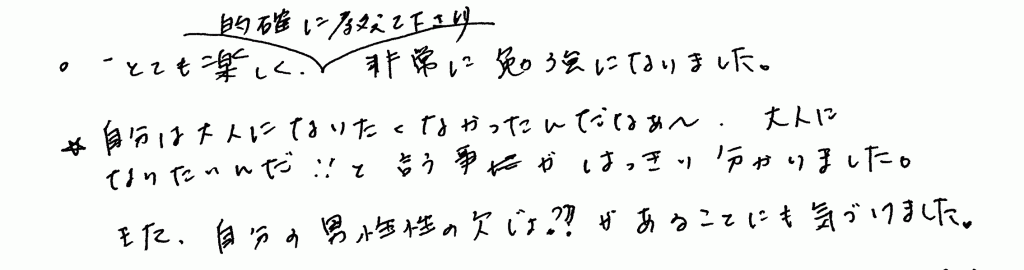 的確に教えて下さり
。-とても楽しく、非常に勉強になりました。
* 自分は大人になりたくなかったんだなぁ〜、大人に
なりたいんだ!!と言う事がはっきり分かりました。
また、自分の男性性の欠じょ??があることにも気づけました。